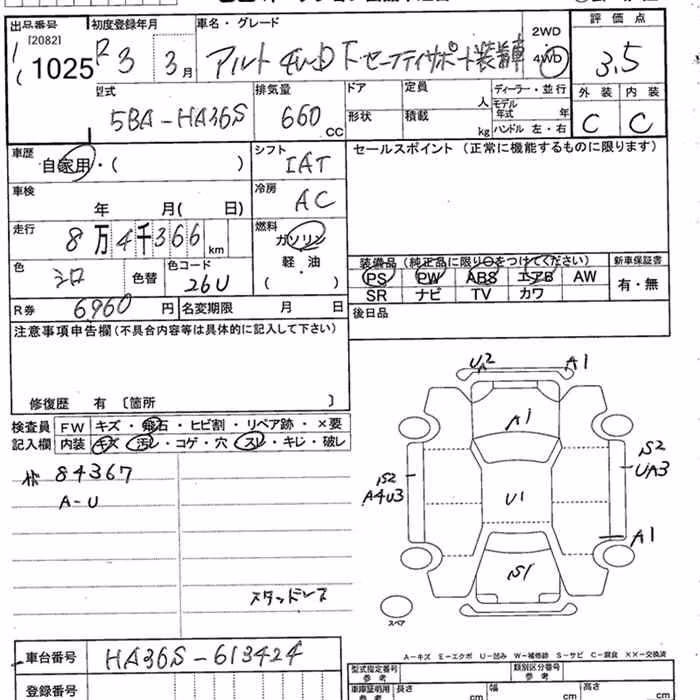 出品番号 初度登録年月 車名・グレード 評価点
[2082] 1025 R3 3月 アルト 4WD F-セーフティサポート装着車 2WD 4WD 3.5
型式 排気量 ドア 定員 人 ディーラー・並行 外装 内装
5BA-HA36S 660 CC 形状 積載 kg モデル年式 年 ハンドル 左・右 C C
車歴 自家用・( ) シフト IAT セールスポイント (正常に機能するものに限ります)
車検 年 月( 日) 冷房 AC
走行 8万4千366 km 燃料 ガソリン 軽・油 ( )
装備品 (純正品に限り○をつけてください) 新車保証書
色 シロ 色替 色コード 26U PS PW ABS エアB AW 有・無
SR ナビ TV カワ
R券 6,960 円 名変期限 月 日 後日品
注意事項申告欄(不具合内容等は具体的に記入して下さい)
修復歴 有 〔箇所 〕
検査員 FW キズ・飛石・ヒビ割・リペア跡・×要
記入欄 内装 キズ・汚レ・コゲ・穴・スレ・キレ・破レ
84367
A-U
スタッドレス
UA2 A1
A1
S2 A4U3
U1
S2 UA3
A1
S1
スペア
A-キズ E-エクボ U-凹み W-補修跡 S-サビ C-腐食 XX-交換済
車台番号 HA36S-613424
型式指定番号 参考 類別区分番号 参考
登録番号 車庫証明用 参考 長さ cm 幅 cm 高さ cm